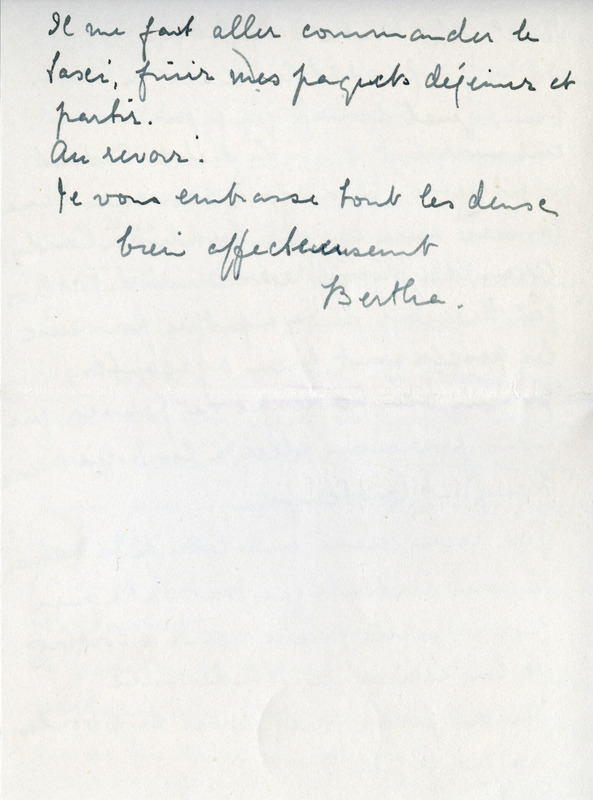 Il me faut aller commander le
taxi, finir mes paquets déjeuner et
partir.
Au revoir.
Je vous embrasse tout les deuse
bien affectueusement
Bertha.